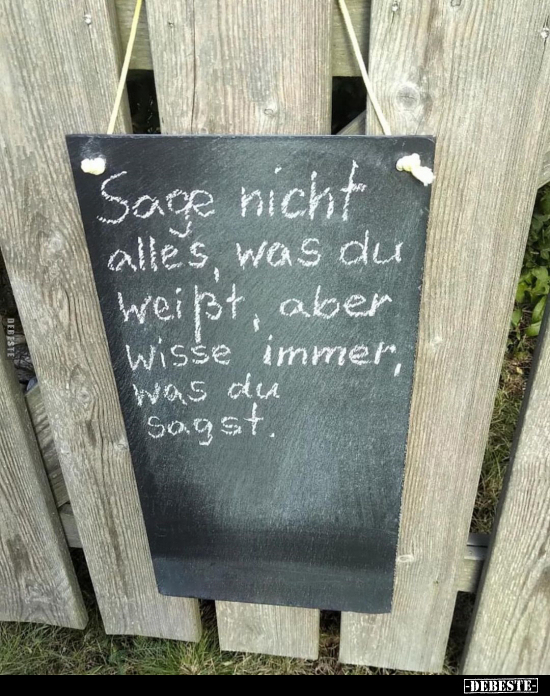 Sage nicht
alles, was du
weißt, aber
wisse immer,
was du
sagst.
DEBESTE
-DEBESTE-